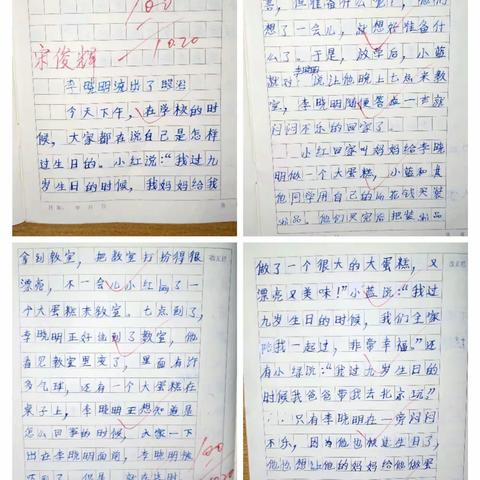 100
10.20
宋俊辉
李晓明流出了眼泪
今天下午，在学校的时
候，大家都在说自己是怎样
过生日的。小红说：“我过九
岁生日的时候，我妈妈给我
喜，但准备什么呢？他们
想了一会儿，就想好准备什
么了。于是，放学后，小蓝
李晓明
说让他晚上七点来教
室，李晓明随便答应一声就
闷闷不乐的回家了。
小红回家叫妈妈给李晓
明做一个大蛋糕，小蓝和其
他同学用自己的零花钱买装
饰品。他们买完后把装饰品
拿到教室，把教室打扮得很
漂亮，不一会儿小红

了一
个大蛋糕来教室。七点到了，
李晓明正好也到了教室，他
看见教室里变了，里面有许
多气球，还有一个大蛋糕在
桌子上，李晓明正想知道是
怎么回事的时候，大家一下
出在李晓明面前，李晓明被
做了一个很大的大蛋糕，又
漂亮又美味！”小蓝说：“我过
九岁生日的时候，我们全家
陪我一起过，非常幸福。”还
有小绿说：“我过九岁生日的
时候我爸爸带我去北京玩？”
只有李晓明在一旁闷闷
不乐，因为他也快过生日了，
他也想让他的妈妈给他做蛋
100
10.20